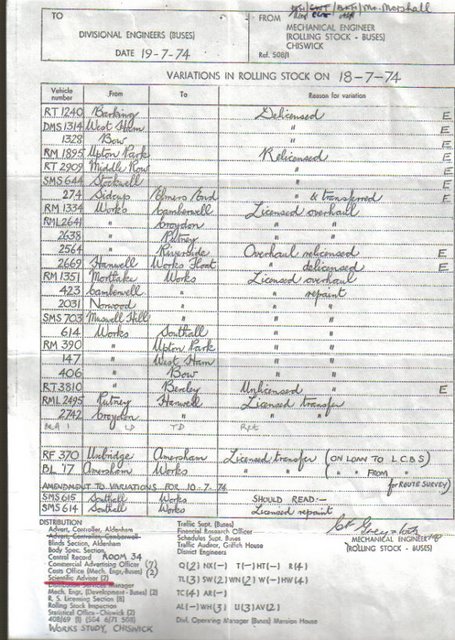 TO
DIVISIONAL ENGINEERS (BUSES)
DATE 19-7-74
Mr. Marshall
FROM
MECHANICAL ENGINEER
(ROLLING STOCK - BUSES)
CHISWICK
Ref. 508/1
VARIATIONS IN ROLLING STOCK ON 18-7-74
Vehicle number From To Reason for variation
RT 1240 Barking Delicensed E
DMS 1314 West Ham " E
1328 Bow " E
RM 1895 Upton Park Relicensed E
RT 2909 Middle Row " E
SMS 644 Stockwell " E
274 Sidcup Elmers End " & transferred E
RM 1334 Works Camberwell Licensed overhaul
RML 2641 " Croydon " "
2638 " Putney " "
2564 " Riverside Overhaul relicensed E
2669 Hanwell Works Float " delicensed E
RM 1351 Mortlake Works Licensed overhaul
423 Camberwell " " repaint
2031 Norwood " " "
SMS 703 Muswell Hill " " "
614 Works Southall " "
RM 390 " Upton Park " "
147 " West Ham " "
406 " Bow " "
RT 3810 " Bexley Unlicensed " E
RML 2495 Putney Hanwell Licensed transfer
2742 Croydon " " "
RF 370 Uxbridge Amersham Licensed transfer (ON LOAN TO L.C.B.S
BL 17 Amersham Works " " ( " " FROM "
AMENDMENT TO VARIATIONS FOR 10-7-74 FOR ROUTE SURVEY)
SMS 615 Southall Works SHOULD READ:-
SMS 614 Southall Works Licensed repaint
DISTRIBUTION
Advert. Controller, Aldenham
Advert. Controller, Camberwell
Blinds Section, Aldenham
Body Spec. Section,
Control Record ROOM 34
Commercial Advertising Officer (7)
Costs Office (Mech. Engr.-Buses) (2)
Scientific Adviser (2)
Distribution Services Manager
Mech. Engr. (Development - Buses) (2)
R. S. Licensing Section (8)
Rolling Stock Inspection
Statistical Office - Chiswick (2)
WORKS STUDY, CHISWICK
Traffic Supt. (Buses)
Financial Research Officer
Schedules Supt. Buses
Traffic Auditor, Griffith House
District Engineers
Q(2) NX(-) T(-) HT(-) R(4)
TL(3) SW(2) WN(2) W(-) HW(4)
TC(4) AR(-)
AL(-) WH(3) U(3) AV(2)
Div. Operating Manager (Buses) Mansion House
MECHANICAL ENGINEER
(ROLLING STOCK - BUSES)